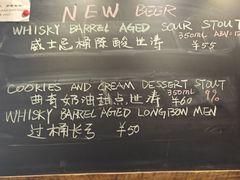 NEW BEER
WHISKY BARREL AGED SOUR STOUT
威士忌桶陈酸世涛 350ML ABV:12
¥55
COOKIES AND CREAM DESSERT STOUT
曲奇奶油甜点世涛 350ML 9%
¥60
WHISKY BARREL AGED LONG
过桶长弓 ¥50